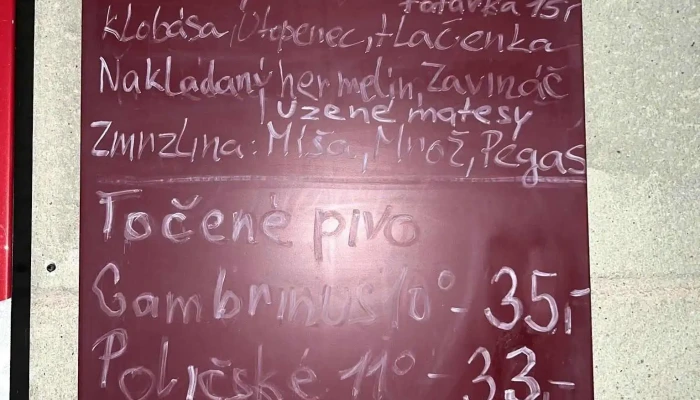 tatarka 15,-
Klobása, Utopenec, tlačenka
Nakládaný hermelín, Zavináč
uzené matesy
Zmrzlina: Míša, Mrož, Pegas
Točené pivo
Gambrinus 10° - 35,-
Poličské 11° - 33,-